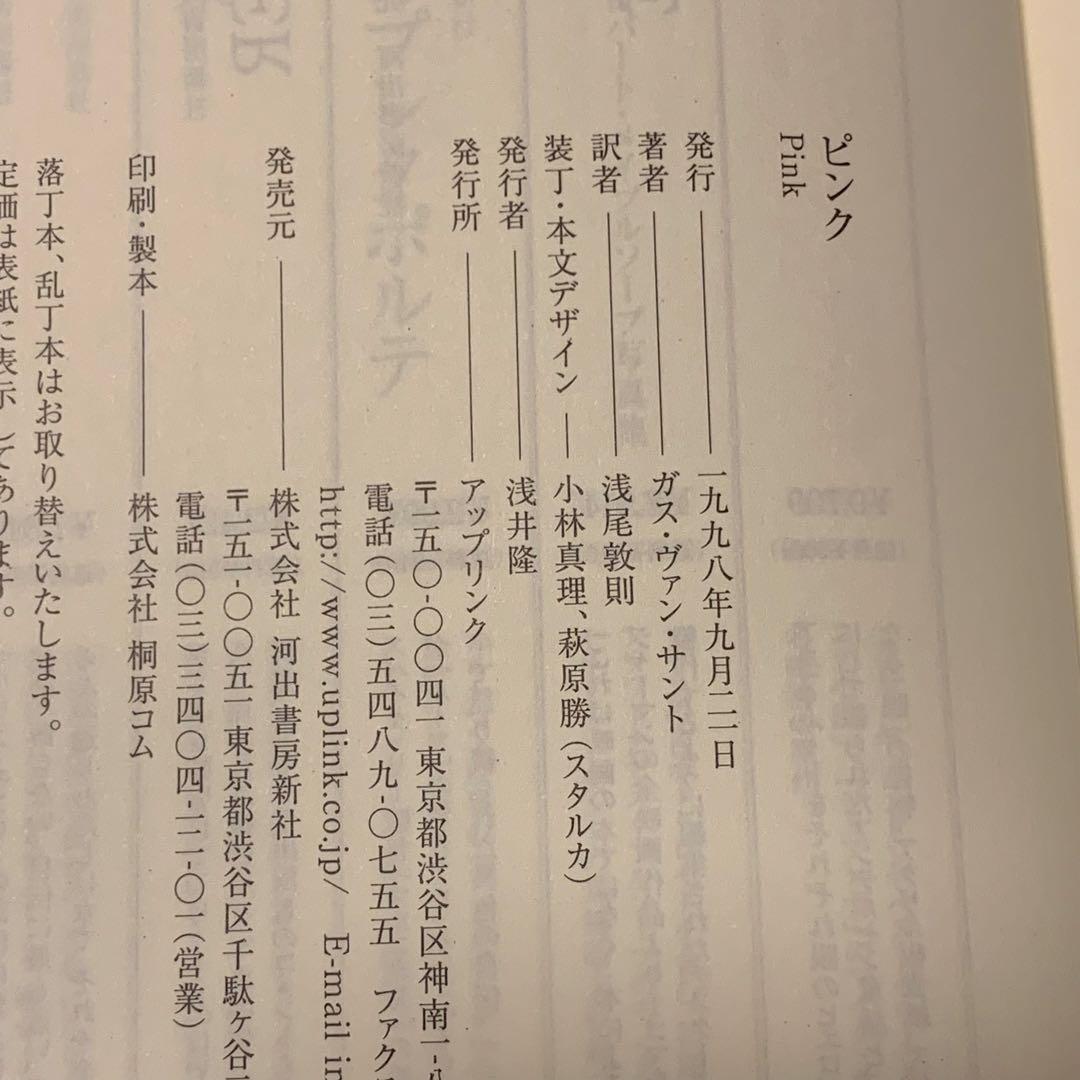 ピンク
Pink
発行 一九九八年九月二一日
著者 ガス・ヴァン・サント
訳者 浅尾敦則
装丁・本文デザイン 小林真理、萩原勝(スタルカ)
発行者 浅井隆
発行所 アップリンク
〒一五〇-〇〇四一 東京都渋谷区神南一-八
電話(〇三)五四八九-〇七五五 ファク
http://www.uplink.co.jp/ E-mail in
発売元 株式会社 河出書房新社
〒一五一-〇〇五一 東京都渋谷区千駄ヶ谷
電話(〇三)三四〇四-一二〇一(営業)
印刷・製本 株式会社 桐原コム
落丁本、乱丁本はお取り替えいたします。
定価は表紙に表示してあります。